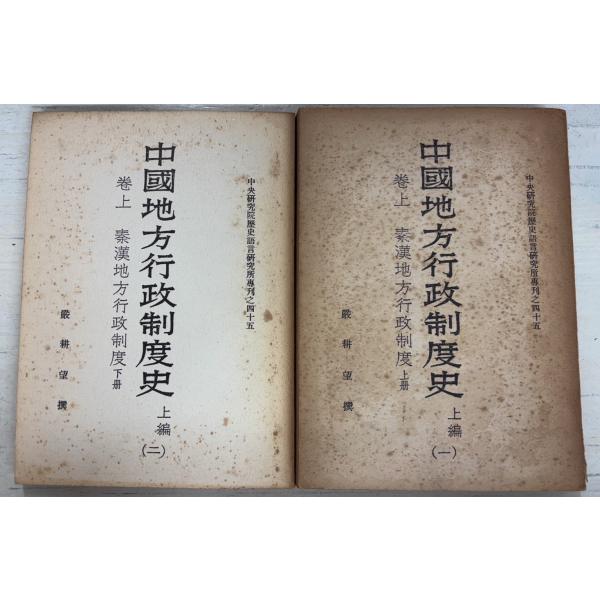 中央研究院歷史語言研究所專刊之四十五
中國地方行政制度史 上編 (一)
卷上 秦漢地方行政制度 上册
嚴耕望撰
中央研究院歷史語言研究所專刊之四十五
中國地方行政制度史 上編 (二)
卷上 秦漢地方行政制度 下册
嚴耕望撰